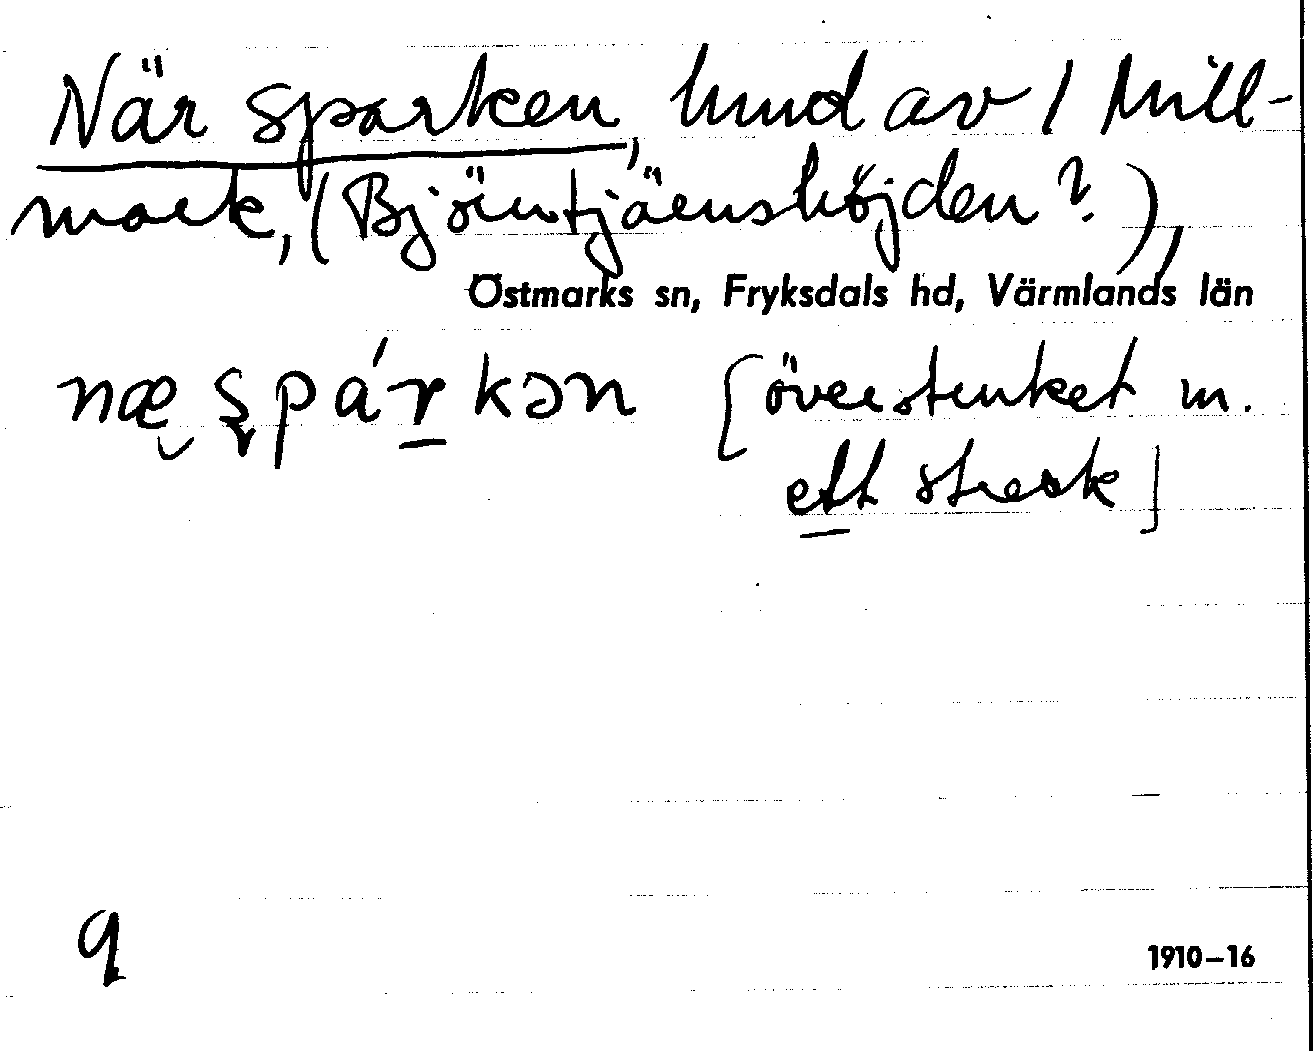 När sparken, hmd av / Mill-
mark, (Björntjärnshöjden?),
Östmarks sn, Fryksdals hd, Värmlands län
næ ʂpárkən [överstruket m.
ett streck]
9
1910–16